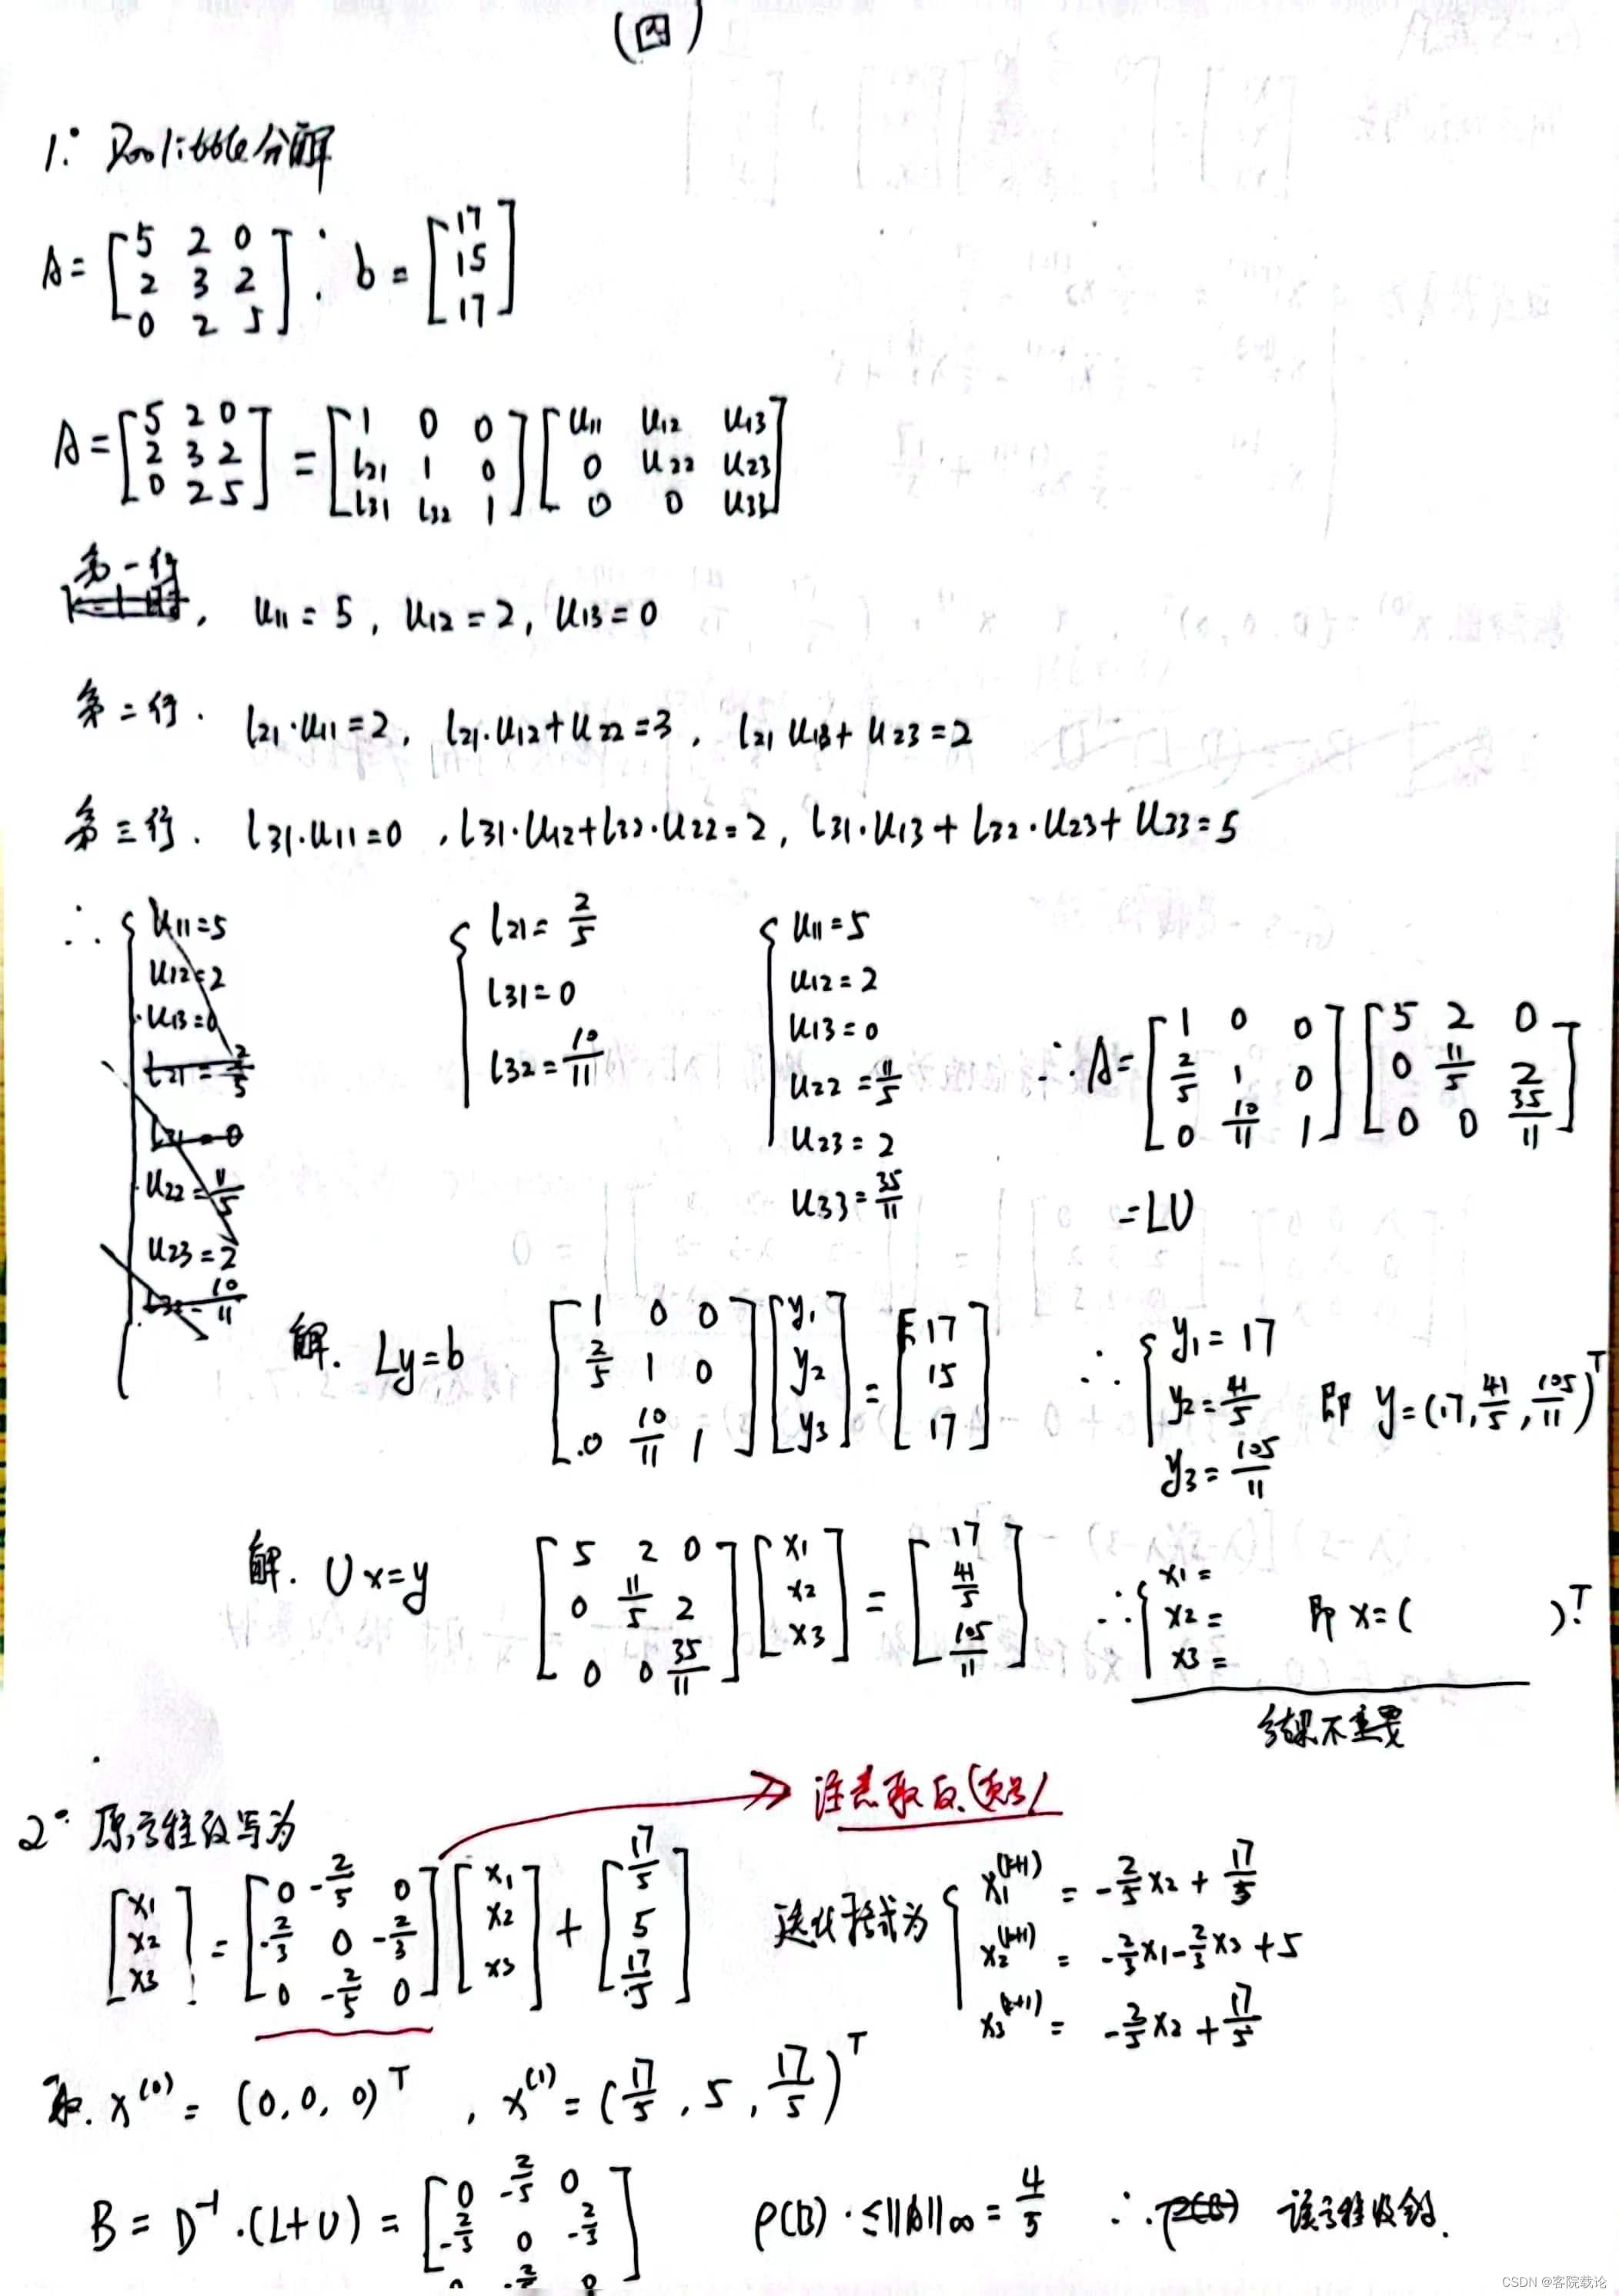 (四)
1° Doolittle分解
A = [5 2 0; 2 3 2; 0 2 5] : b = [17; 15; 17]
A = [5 2 0; 2 3 2; 0 2 5] = [1 0 0; l21 1 0; l31 l32 1] [u11 u12 u13; 0 u22 u23; 0 0 u33]
第一行, u11 = 5, u12 = 2, u13 = 0
第二行. l21·u11 = 2, l21·u12 + u22 = 3, l21 u13 + u23 = 2
第三行. l31·u11 = 0, l31·u12 + l32·u22 = 2, l31·u13 + l32·u23 + u33 = 5
∴ { u11 = 5
u12 = 2
u13 = 0
l21 = 2/5
l31 = 0
u22 = 11/5
u23 = 2
l32 = 10/11
{ l21 = 2/5
l31 = 0
l32 = 10/11
{ u11 = 5
u12 = 2
u13 = 0
u22 = 11/5
u23 = 2
u33 = 35/11
∴ A = [1 0 0; 2/5 1 0; 0 10/11 1] [5 2 0; 0 11/5 2; 0 0 35/11]
= LU
解. Ly = b [1 0 0; 2/5 1 0; 0 10/11 1] [y1; y2; y3] = [17; 15; 17] ∴ { y1 = 17
y2 = 41/5 即 y = (17, 41/5, 105/11)^T
y3 = 105/11
解. Ux = y [5 2 0; 0 11/5 2; 0 0 35/11] [x1; x2; x3] = [17; 41/5; 105/11] ∴ { x1 =
x2 = 即 x = ( )^T
x3 =
结果不重要
注意取反(负号)
2° 原方程改写为
[x1; x2; x3] = [0 -2/5 0; -2/3 0 -2/3; 0 -2/5 0] [x1; x2; x3] + [17/5; 5; 17/5] 迭代格式为 { x1^(k+1) = -2/5 x2 + 17/5
x2^(k+1) = -2/3 x1 - 2/3 x3 + 5
x3^(k+1) = -2/5 x2 + 17/5
取. x^(0) = (0, 0, 0)^T, x^(1) = (17/5, 5, 17/5)^T
B = D^-1·(L+U) = [0 -2/5 0; -2/3 0 -2/3; 0 -2/5 0] ρ(B) ≤ ||B||∞ = 4/5 ∴ ρ(B) 该方程收敛.
CSDN @客院载论